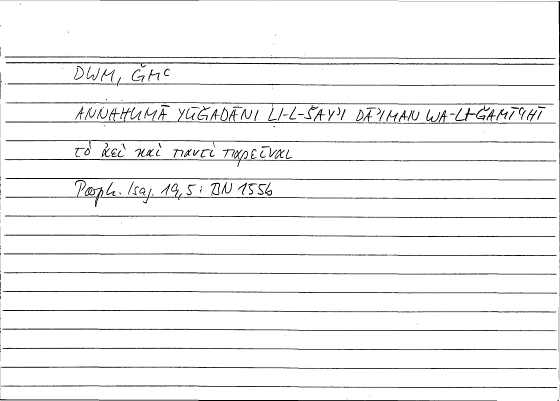 DWM, ǦMᶜ
ANNAHUMĀ YŪǦADĀNI LI-L-ŠAYʾI DĀʾIMAN WA-LI-ǦAMĪʿIHI
τὸ ἀεὶ καὶ παντὶ παρεῖναι
Porph. Isag. 19,5: BN 155b